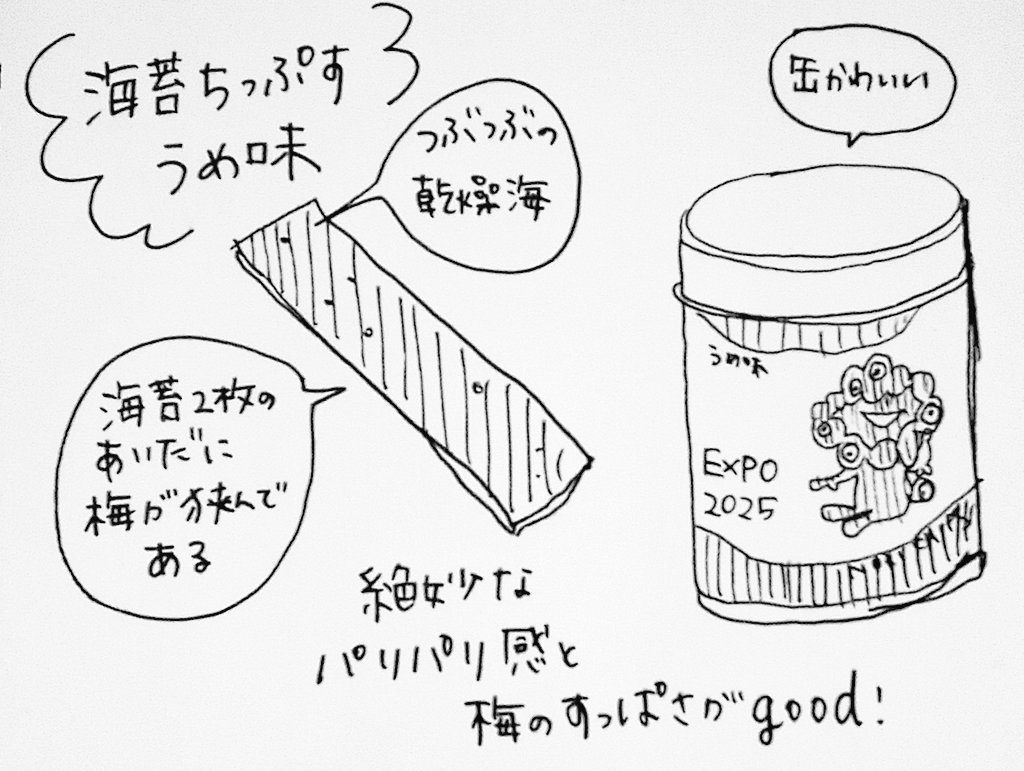 海苔ちっぷす
うめ味
つぶつぶの
乾燥海
缶かわいい
海苔2枚の
あいだに
梅が挟んで
ある
うめ味
EXPO
2025
絶妙な
パリパリ感と
梅のすっぱさがgood!